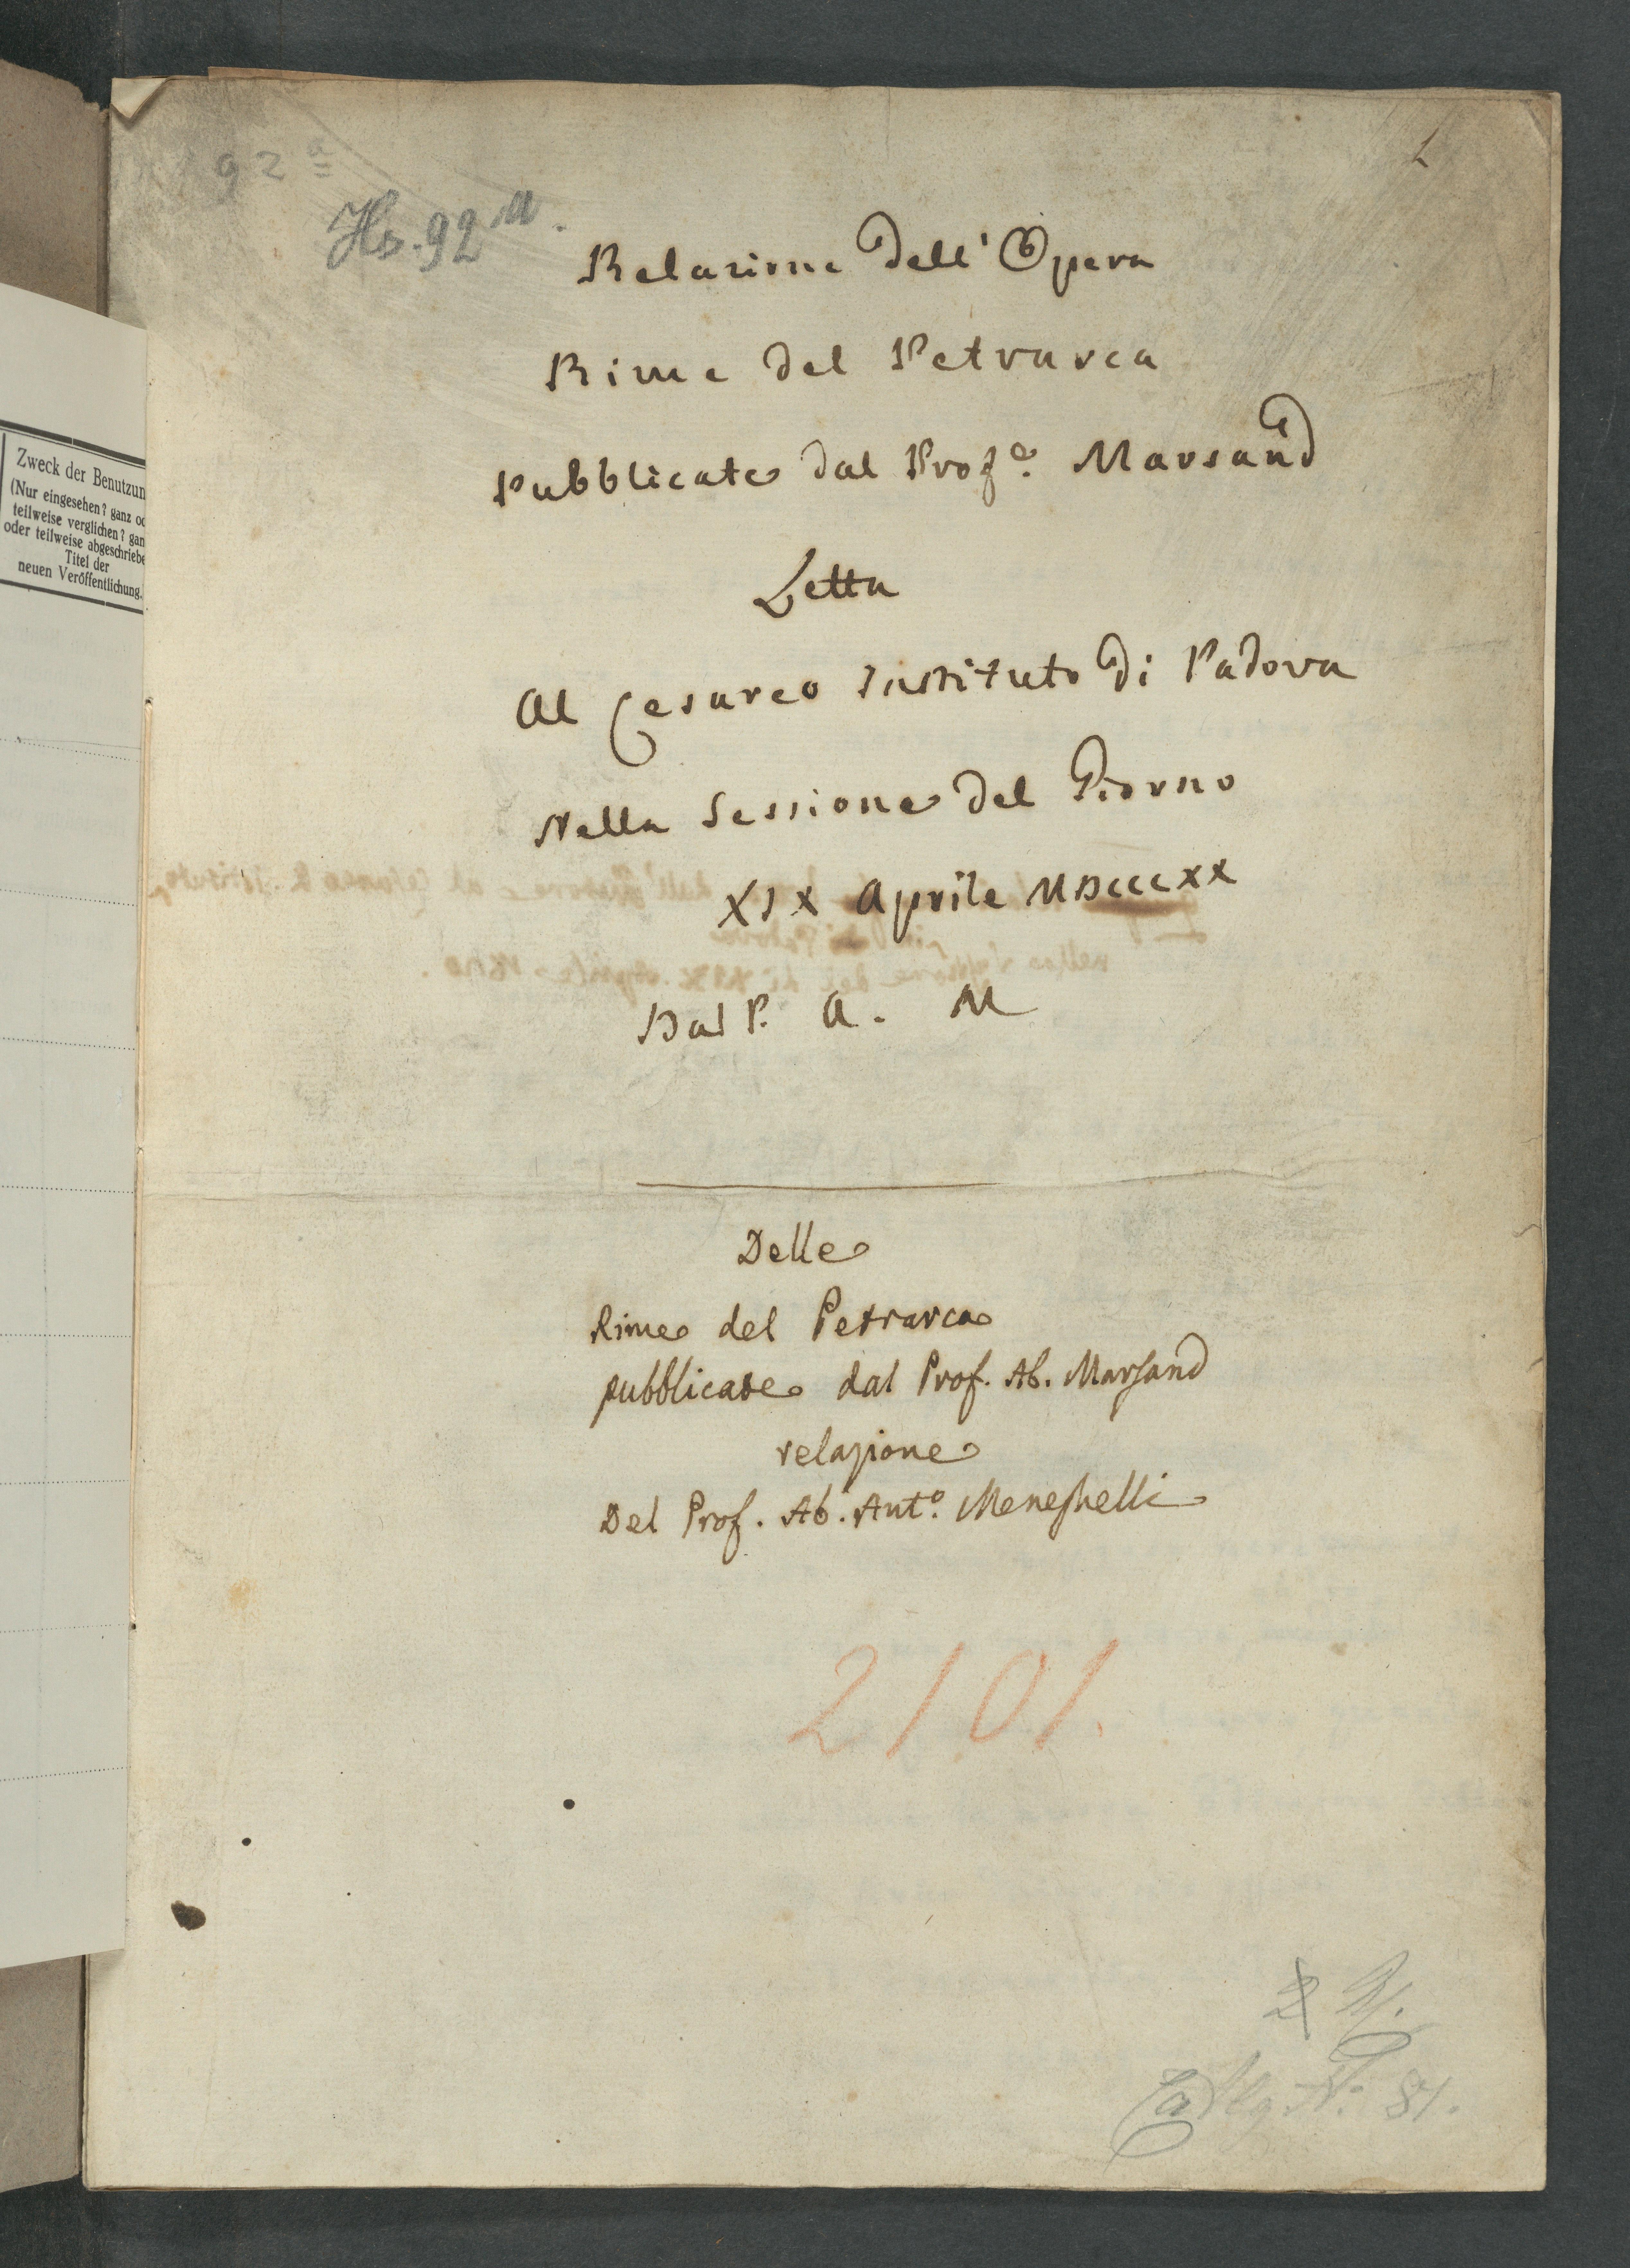 92 a
Hs. 92 a.
1
Relazione dell' Opera
Rime del Petrarca
Pubblicate dal Profe. Marsand
Letta
Al Cesareo Instituto di Padova
Nella Sessione del Giorno
XIX Aprile MDCCCXX
Dal P. A. M
Delle
Rime del Petrarca
pubblicate dal Prof. Ab. Marsand
relazione
Del Prof. Ab. Anto. Meneghelli
2101.
N: 81.
Zweck der Benutzun
(Nur eingesehen? ganz od
teilweise verglichen? gan
oder teilweise abgeschriebe
Titel der
neuen Veröffentlichung.